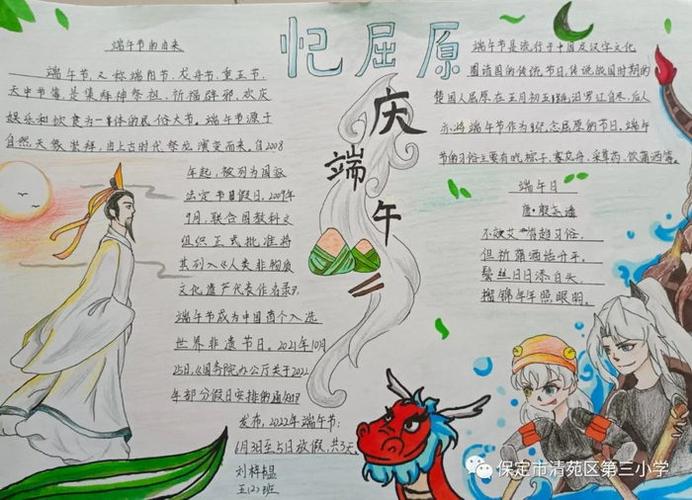 忆屈原
庆端午
端午节的由来
端午节,又称端阳节,龙舟节,重五节,
天中节等,是集拜神祭祖,祈福辟邪,欢庆
娱乐和饮食为一体的民俗大节。端午节源于
自然天象崇拜,由上古时代祭龙演变而来。自2008
年起,被列为国家
法定节日假日,2009年
9月,联合国教科文
组织正式批准将
其列入《人类非物质
文化遗产代表作名录》,
端午节成为中国首个入选
世界非遗节日。2021年10月
25日,《国务院办公厅关于2022
年部分假日安排的通知》
发布,2022年端午节:
6月3日至5日放假,共3天。
刘梓煜
五(2)班
端午节是流行于中国及汉字文化
圈诸国的传统节日,传说战国时期的
楚国人屈原在五月初五跳汨罗江自尽,后人
亦将端午节作为纪念屈原的节日。端午
节的习俗主要有吃粽子,赛龙舟,采草药,饮蒲酒等。
端午日
唐·殷尧藩
不效艾符趋习俗,
但祈蒲酒话升平。
鬓丝日日添白头,
榴锦年年照眼明。
保定市清苑区第三小学